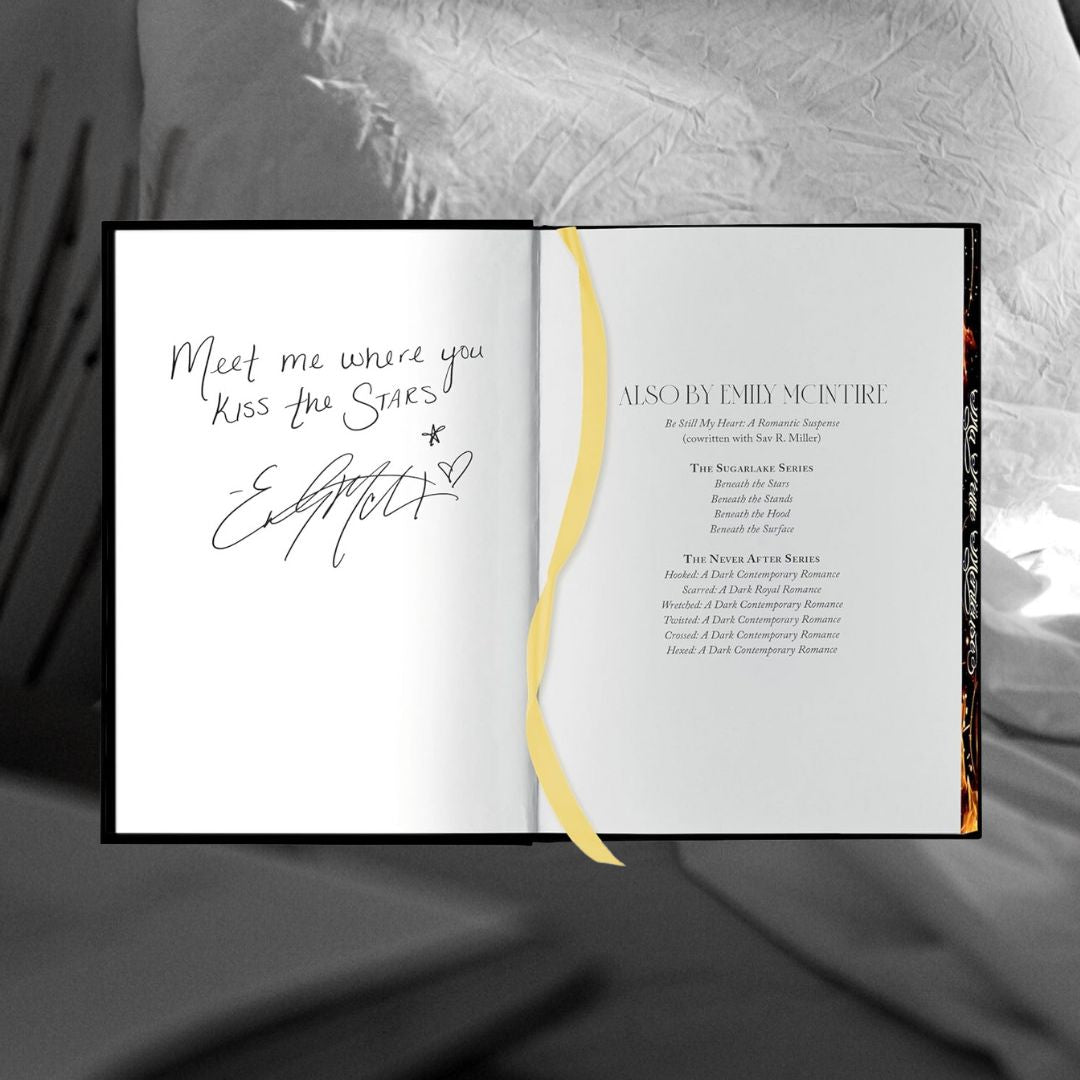 Meet me where you
Kiss the STARS
-Emily McIntire
ALSO BY EMILY MCINTIRE
Be Still My Heart: A Romantic Suspense
(cowritten with Sav R. Miller)
THE SUGARLAKE SERIES
Beneath the Stars
Beneath the Stands
Beneath the Hood
Beneath the Surface
THE NEVER AFTER SERIES
Hooked: A Dark Contemporary Romance
Scarred: A Dark Royal Romance
Wretched: A Dark Contemporary Romance
Twisted: A Dark Contemporary Romance
Crossed: A Dark Contemporary Romance
Hexed: A Dark Contemporary Romance
Ma Petite Menteuse